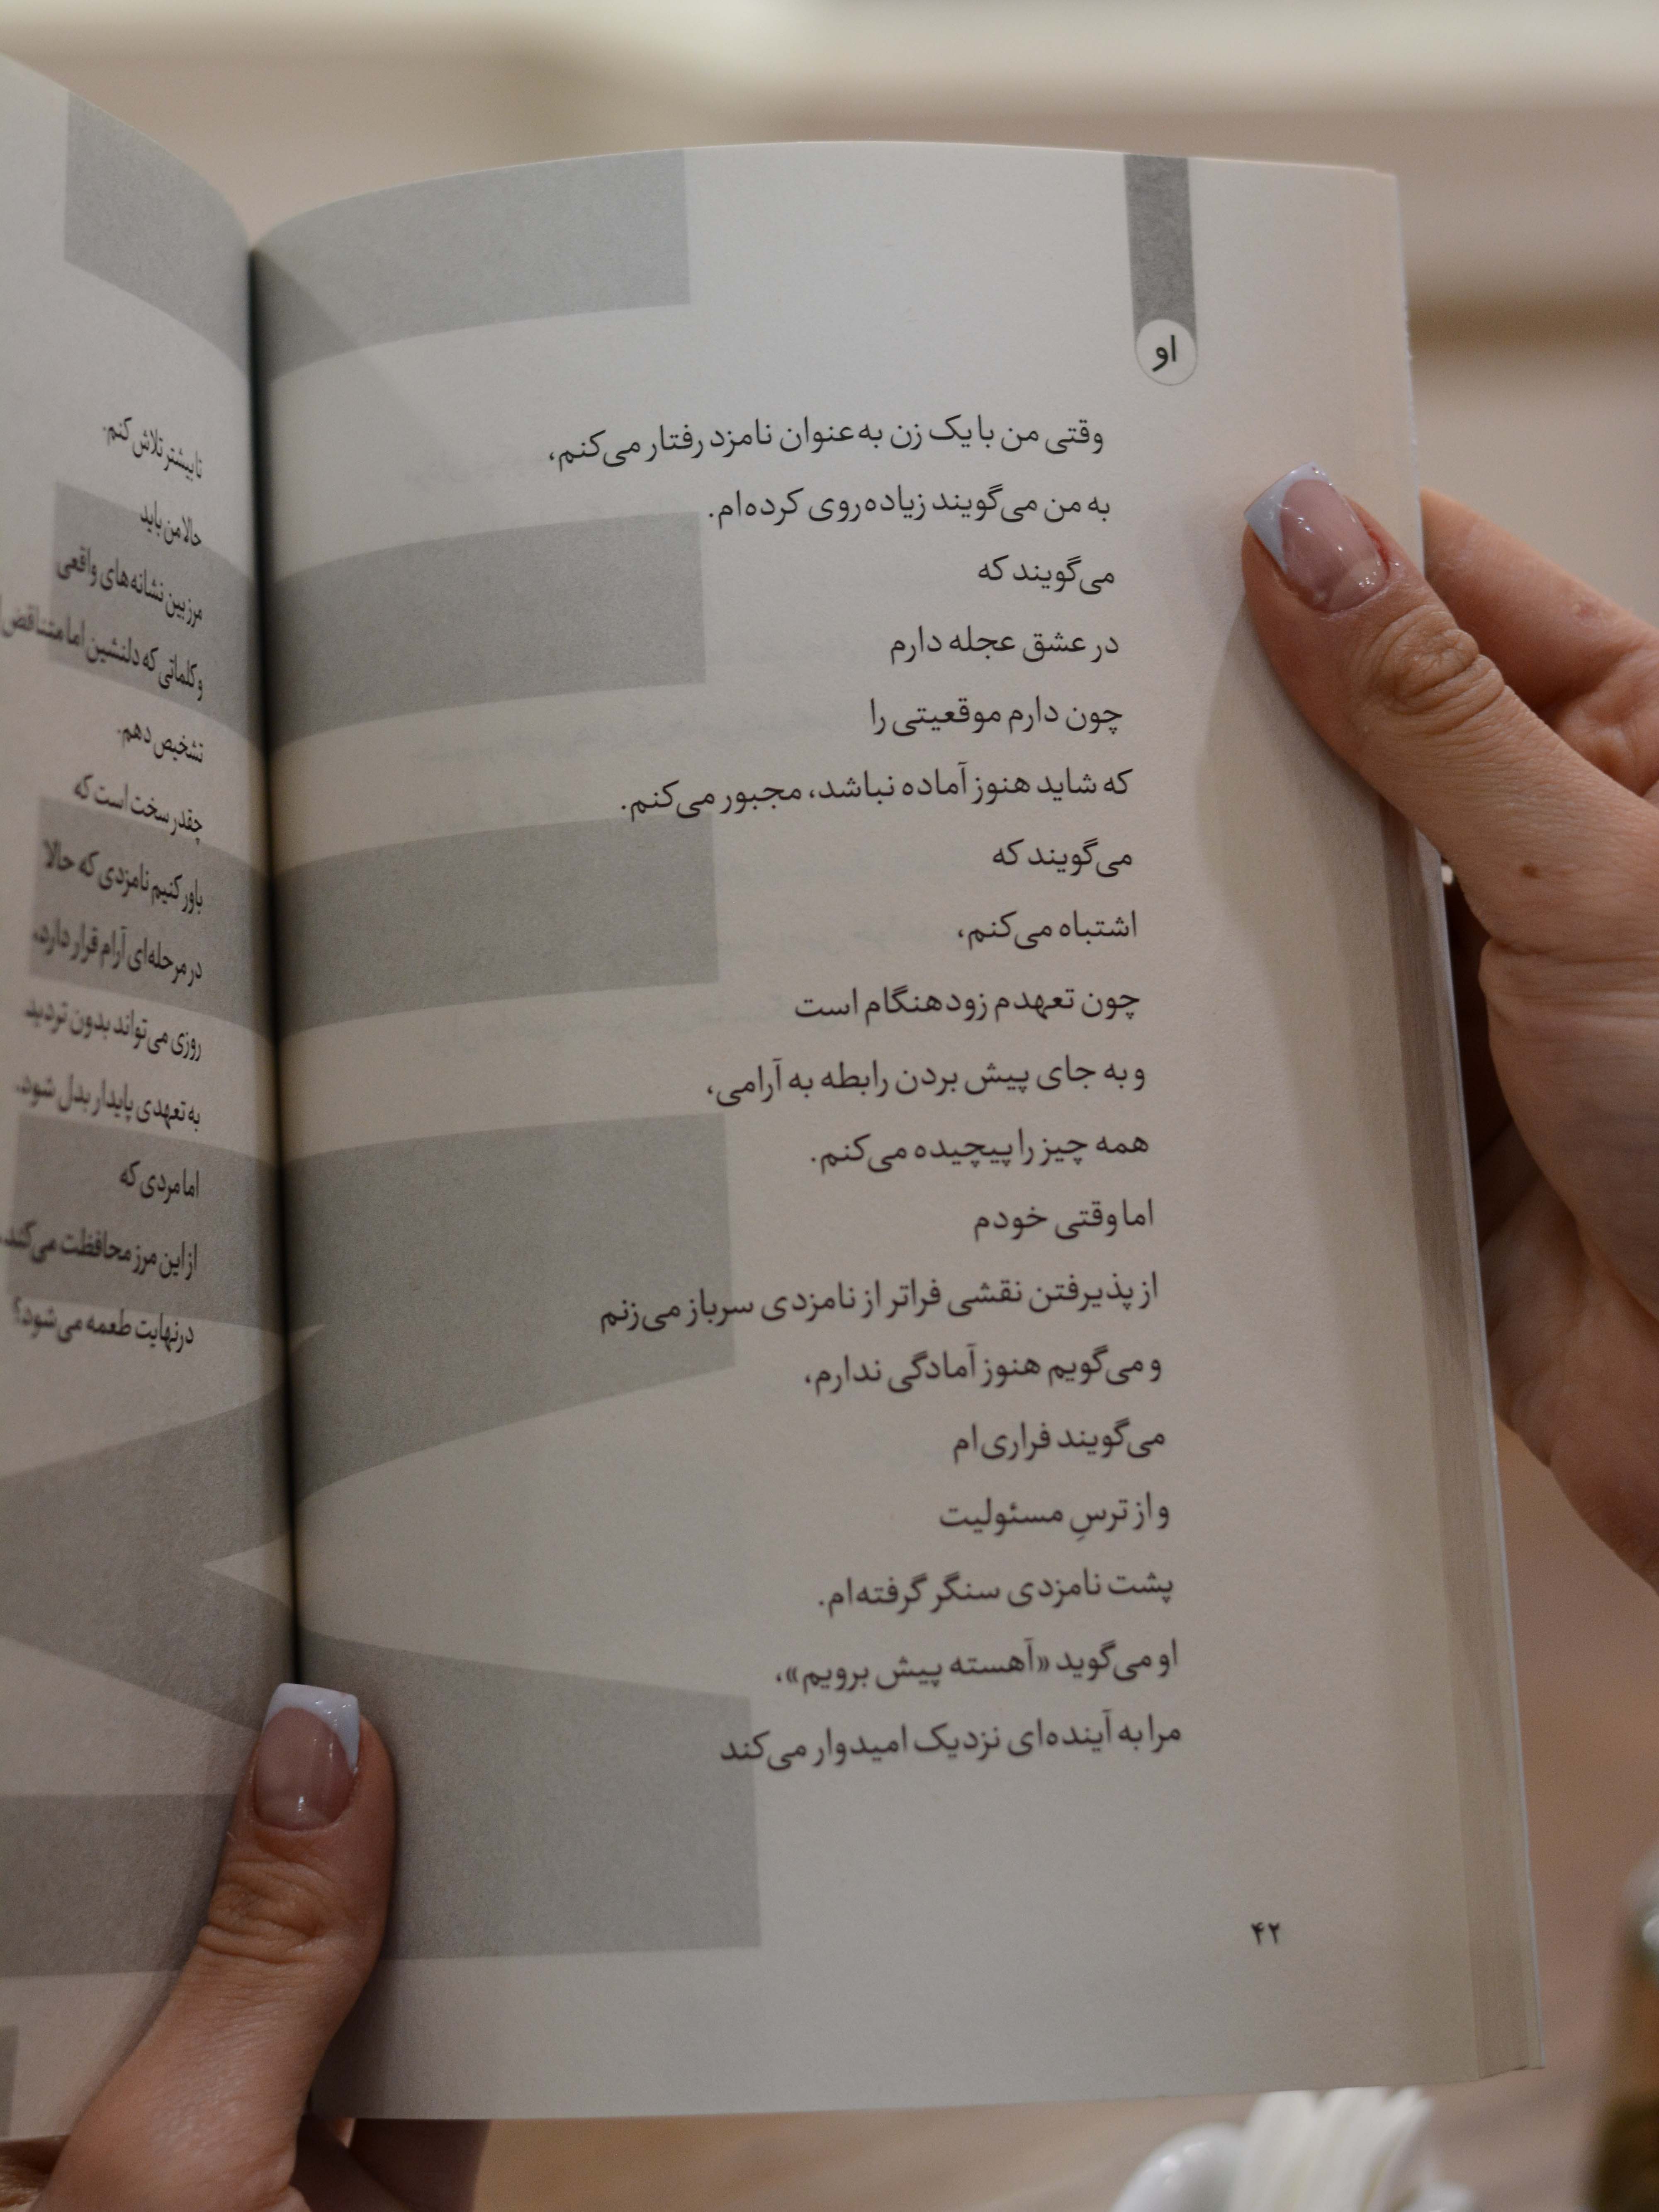 او
وقتی من با یک زن به‌عنوان نامزد رفتار می‌کنم،
به من می‌گویند زیاده‌روی کرده‌ام.
می‌گویند که
در عشق عجله دارم
چون دارم موقعیتی را
که شاید هنوز آماده نباشد، مجبور می‌کنم.
می‌گویند که
اشتباه می‌کنم،
چون تعهدم زودهنگام است
و به جای پیش بردن رابطه به آرامی،
همه چیز را پیچیده می‌کنم.
اما وقتی خودم
از پذیرفتن نقشی فراتر از نامزدی سرباز می‌زنم
و می‌گویم هنوز آمادگی ندارم،
می‌گویند فراری‌ام
و از ترسِ مسئولیت
پشت نامزدی سنگر گرفته‌ام.
او می‌گوید «آهسته پیش برویم»،
مرا به آینده‌ای نزدیک امیدوار می‌کند
۴۲
تا بیشتر تلاش کنم.
حالا من باید
مرز بین نشانه‌های واقعی
و کلماتی که دلنشین اما متناقض
تشخیص دهم.
چقدر سخت است که
باور کنیم نامزدی که حالا
در مرحله‌ای آرام قرار دارد،
روزی می‌تواند بدون تردید
به تعهدی پایدار بدل شود.
اما مردی که
از این مرز محافظت می‌کند،
درنهایت طعمه می‌شود؟